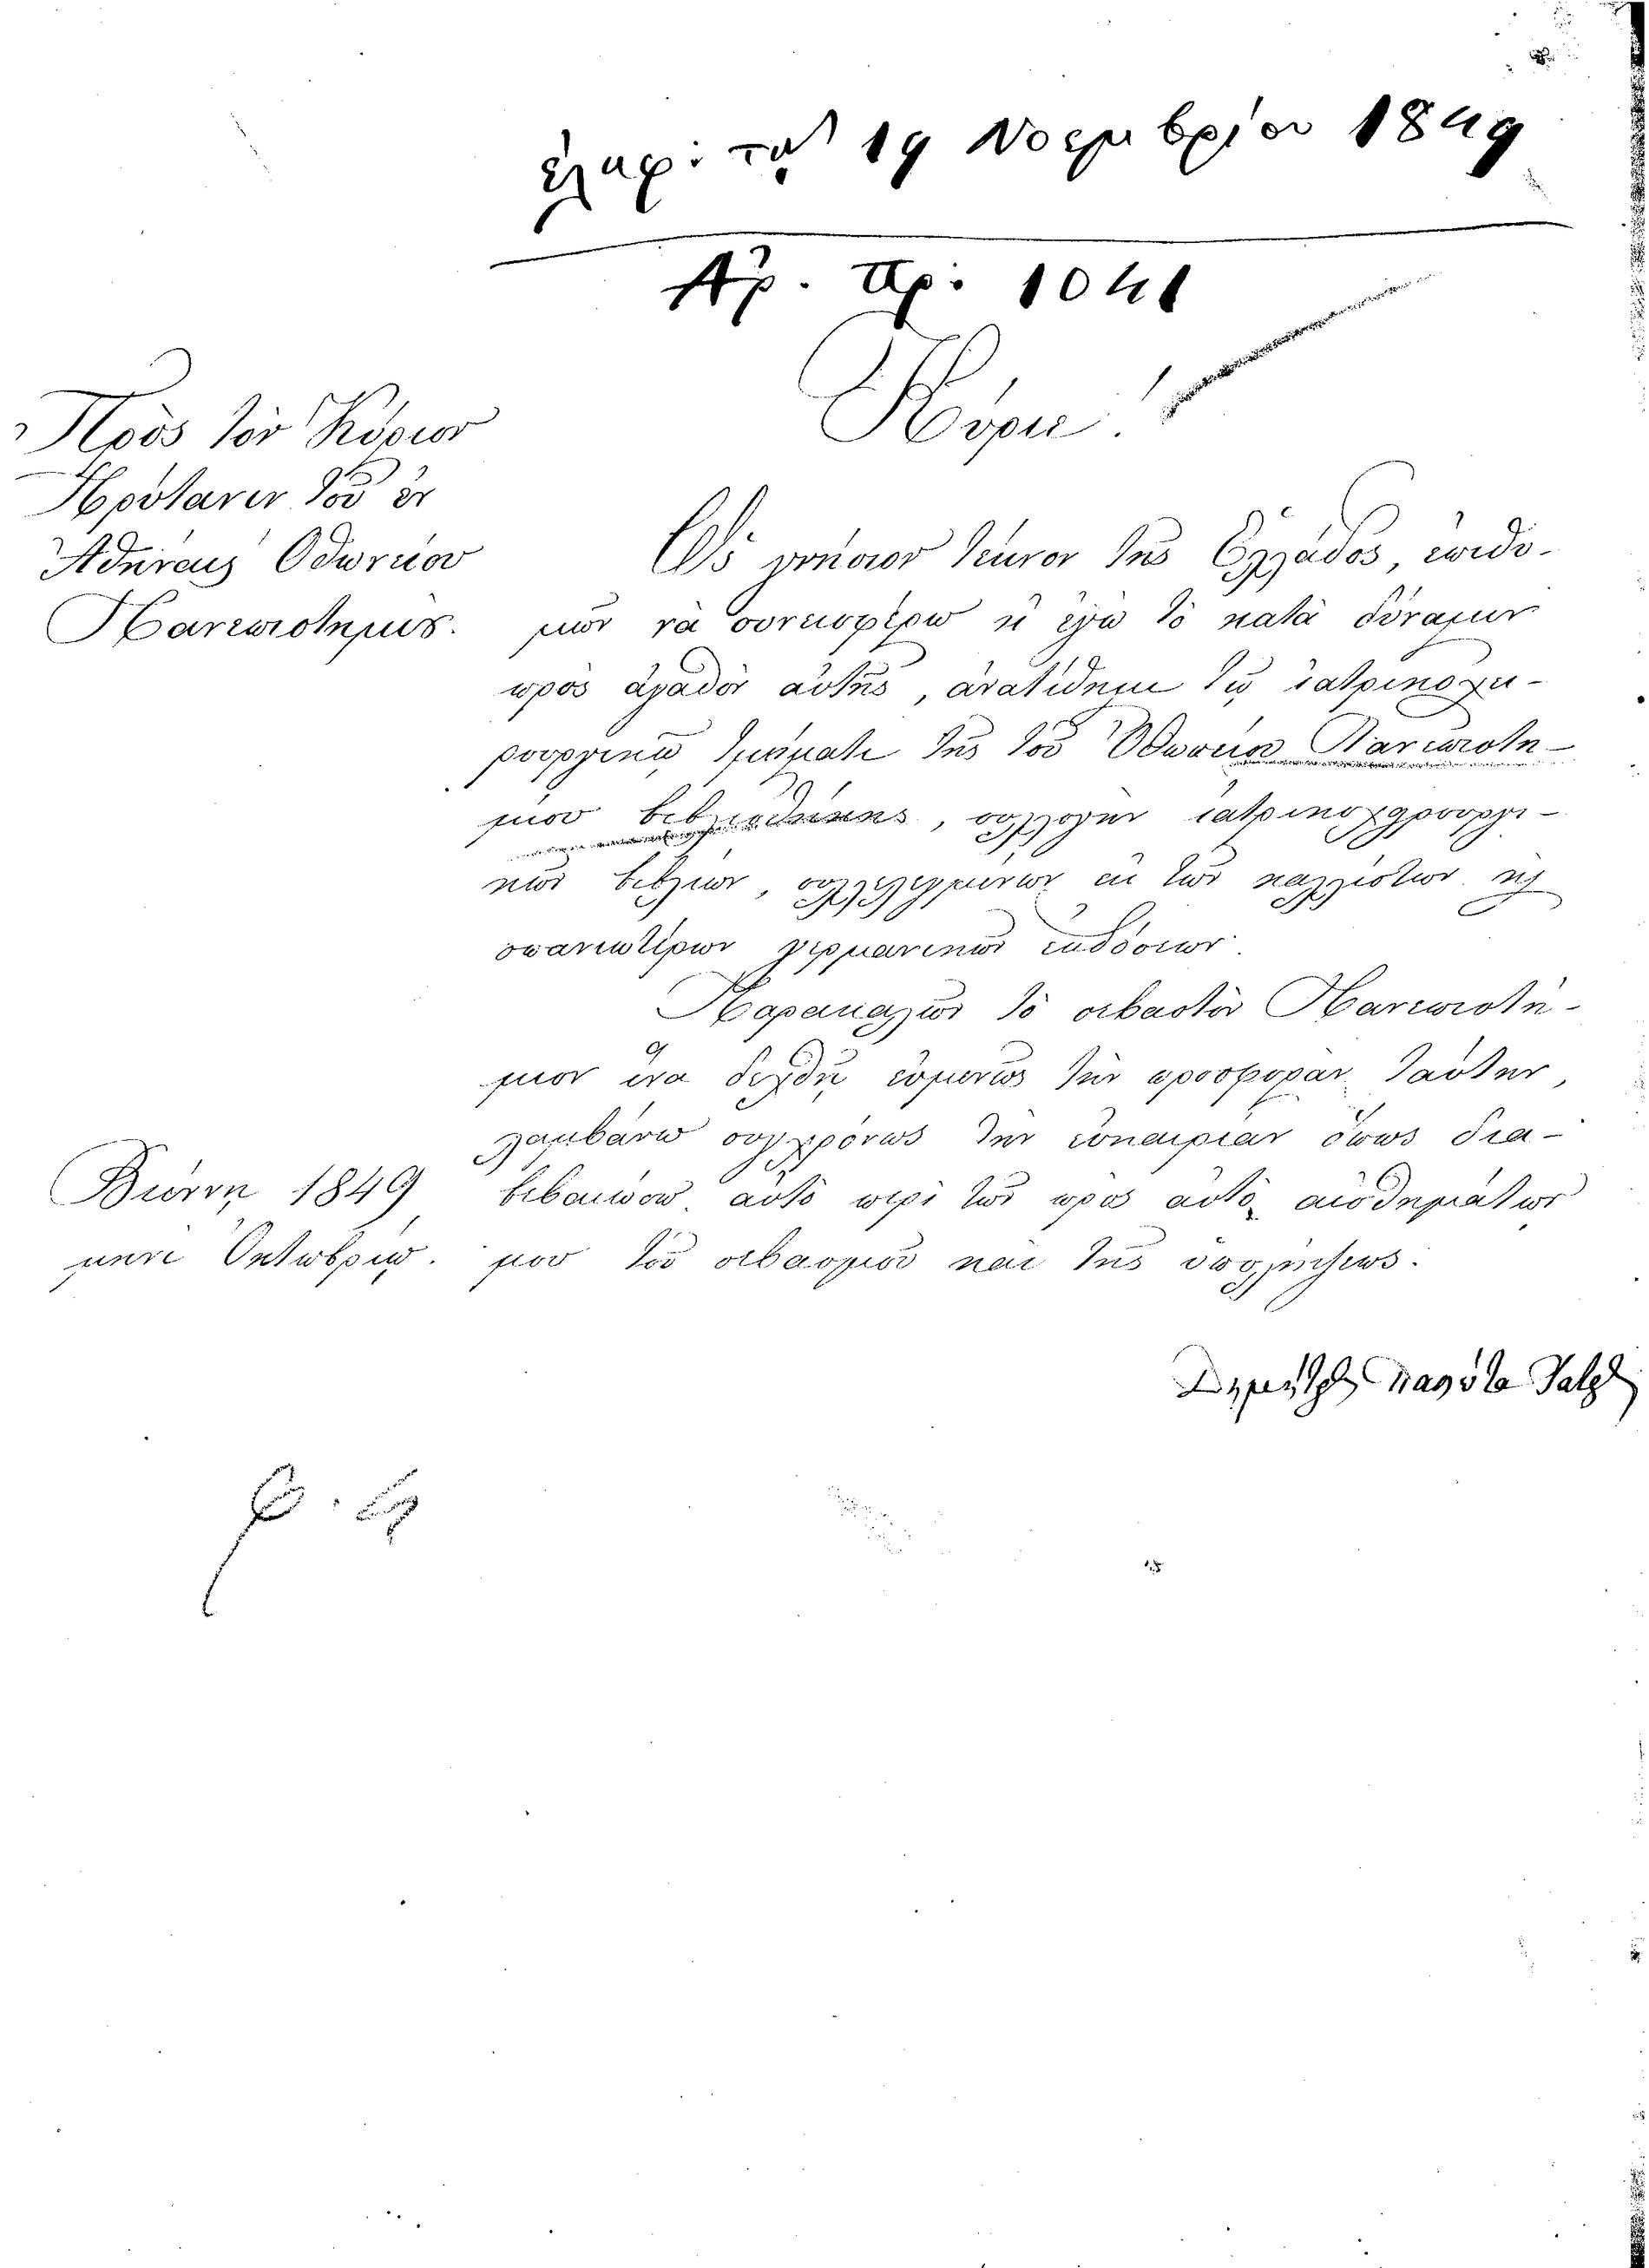 ἐλήφ: τῇ 19 Νοεμβρίου 1849
Ἀρ. Πρ: 1041
Κύριε!
Πρὸς τὸν Κύριον
Πρύτανιν τοῦ ἐν
Ἀθήναις Ὀθωνείου
Πανεπιστημίου.
Ὡς γνήσιον τέκνον τῆς Ἑλλάδος, ἐπιθυ-
μῶν νὰ συνεισφέρω κ' ἐγὼ τὸ κατὰ δύναμιν
πρὸς ἀγαθὸν αὐτῆς, ἀνατίθημι τῷ ἰατρικοχει-
ρουργικῷ τμήματι τῆς τοῦ Ὀθωνείου Πανεπιστη-
μίου βιβλιοθήκης, συλλογὴν ἰατρικοχειρουργι-
κῶν βιβλίων, συλλελεγμένων ἐκ τῶν καλλίστων κ
σπανιωτέρων γερμανικῶν ἐκδόσεων.
Παρακαλῶν τὸ σεβαστὸν Πανεπιστή-
μιον ἵνα δεχθῇ εὐμενῶς τὴν προσφορὰν ταύτην,
λαμβάνω συγχρόνως τὴν εὐκαιρίαν ὅπως δια-
βεβαιώσω αὐτὸ περὶ τῶν πρὸς αὐτὸ αἰσθημάτων
μου τοῦ σεβασμοῦ καὶ τῆς ὑπολήψεως.
Βιέννῃ 1849
μηνὶ Ὀκτωβρίῳ.
Δημήτριος